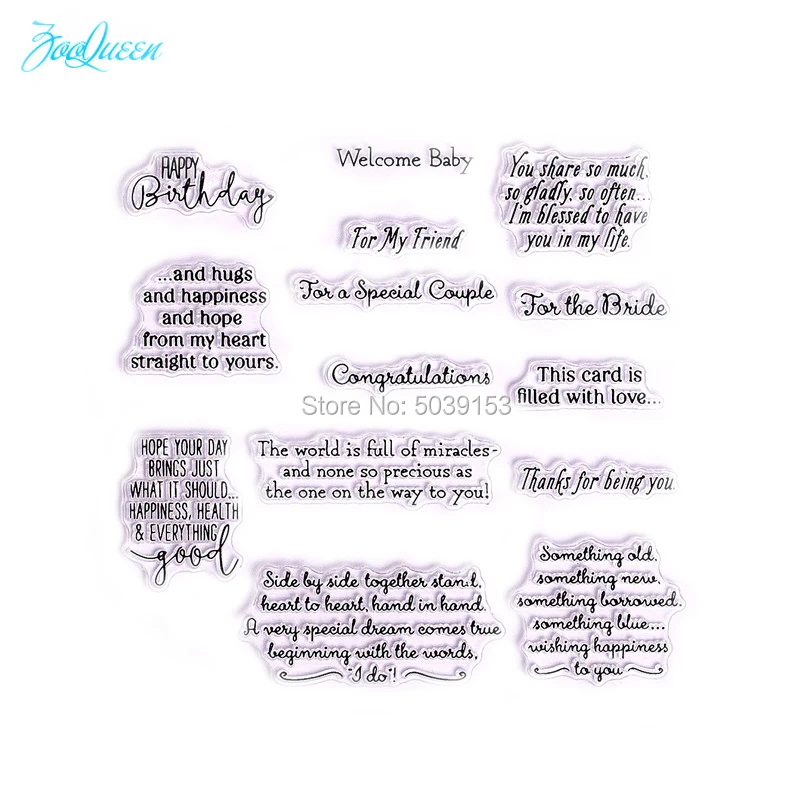 ZooQueen
HAPPY
Birthday
Welcome Baby
You share so much,
so gladly, so often...
I'm blessed to have
you in my life.
For My Friend
...and hugs
and happiness
and hope
from my heart
straight to yours.
For a Special Couple
For the Bride
Congratulations
This card is
filled with love...
Store No: 5039153
HOPE YOUR DAY
BRINGS JUST
WHAT IT SHOULD...
HAPPINESS, HEALTH
& EVERYTHING
good
The world is full of miracles-
and none so precious as
the one on the way to you!
Thanks for being you.
Side by side together stand,
heart to heart, hand in hand.
A very special dream comes true
beginning with the words,
"I do"!
Something old,
something new,
something borrowed,
something blue...
wishing happiness
to you